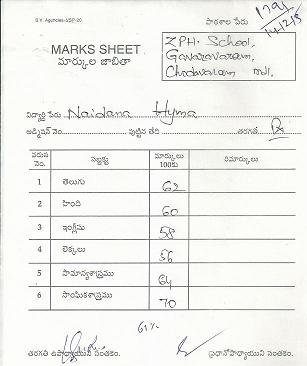 S.V. Agencies-VSP-20
పాఠశాల పేరు
1794
14/12/15
MARKS SHEET
మార్కుల జాబితా
ZPH. School,
Gavaravaram,
Chodavaram Mdl.
విద్యార్థి పేరు Naidana Hyma
అడ్మిషన్ నెం. పుట్టిన తేది తరగతి IX
వరుస నెం. సబ్జక్టు మార్కులు 100కు రిమార్కులు
1 తెలుగు 62
2 హింది 60
3 ఇంగ్లీషు 58
4 లెక్కలు 56
5 సామాన్యశాస్త్రము 64
6 సాంఘికశాస్త్రము 70
61%
తరగతి ఉపాధ్యాయుని సంతకం. ప్రధానోపాధ్యాయుని సంతకం.